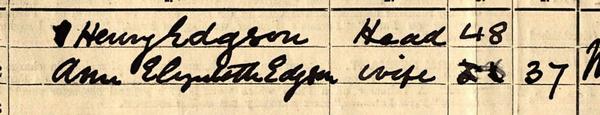 1 Henry Edgson Head 48
Ann Elizabeth Edgson wife 37